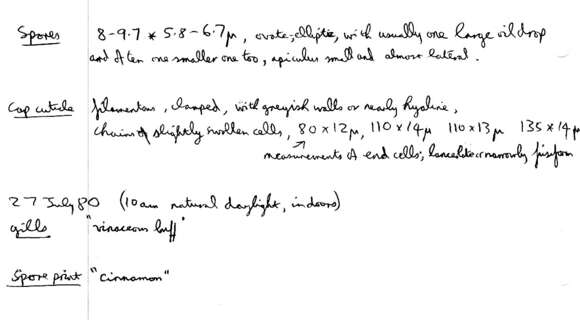 Spores 8-9.7 * 5.8-6.7μ, ovate-elliptic, with usually one large oil drop
and often one smaller one too, apiculus small and almost lateral.
Cap cuticle filamentous, clamped, with greyish walls or nearly hyaline,
chains of slightly swollen cells, 80 x 12μ, 110 x 14μ 110 x 13μ 135 x 14μ
measurements of end cells; lanceolate or narrowly fusiform
27 July 80 (10am natural daylight, indoors)
gills "vinaceous buff"
Spore print "cinnamon"